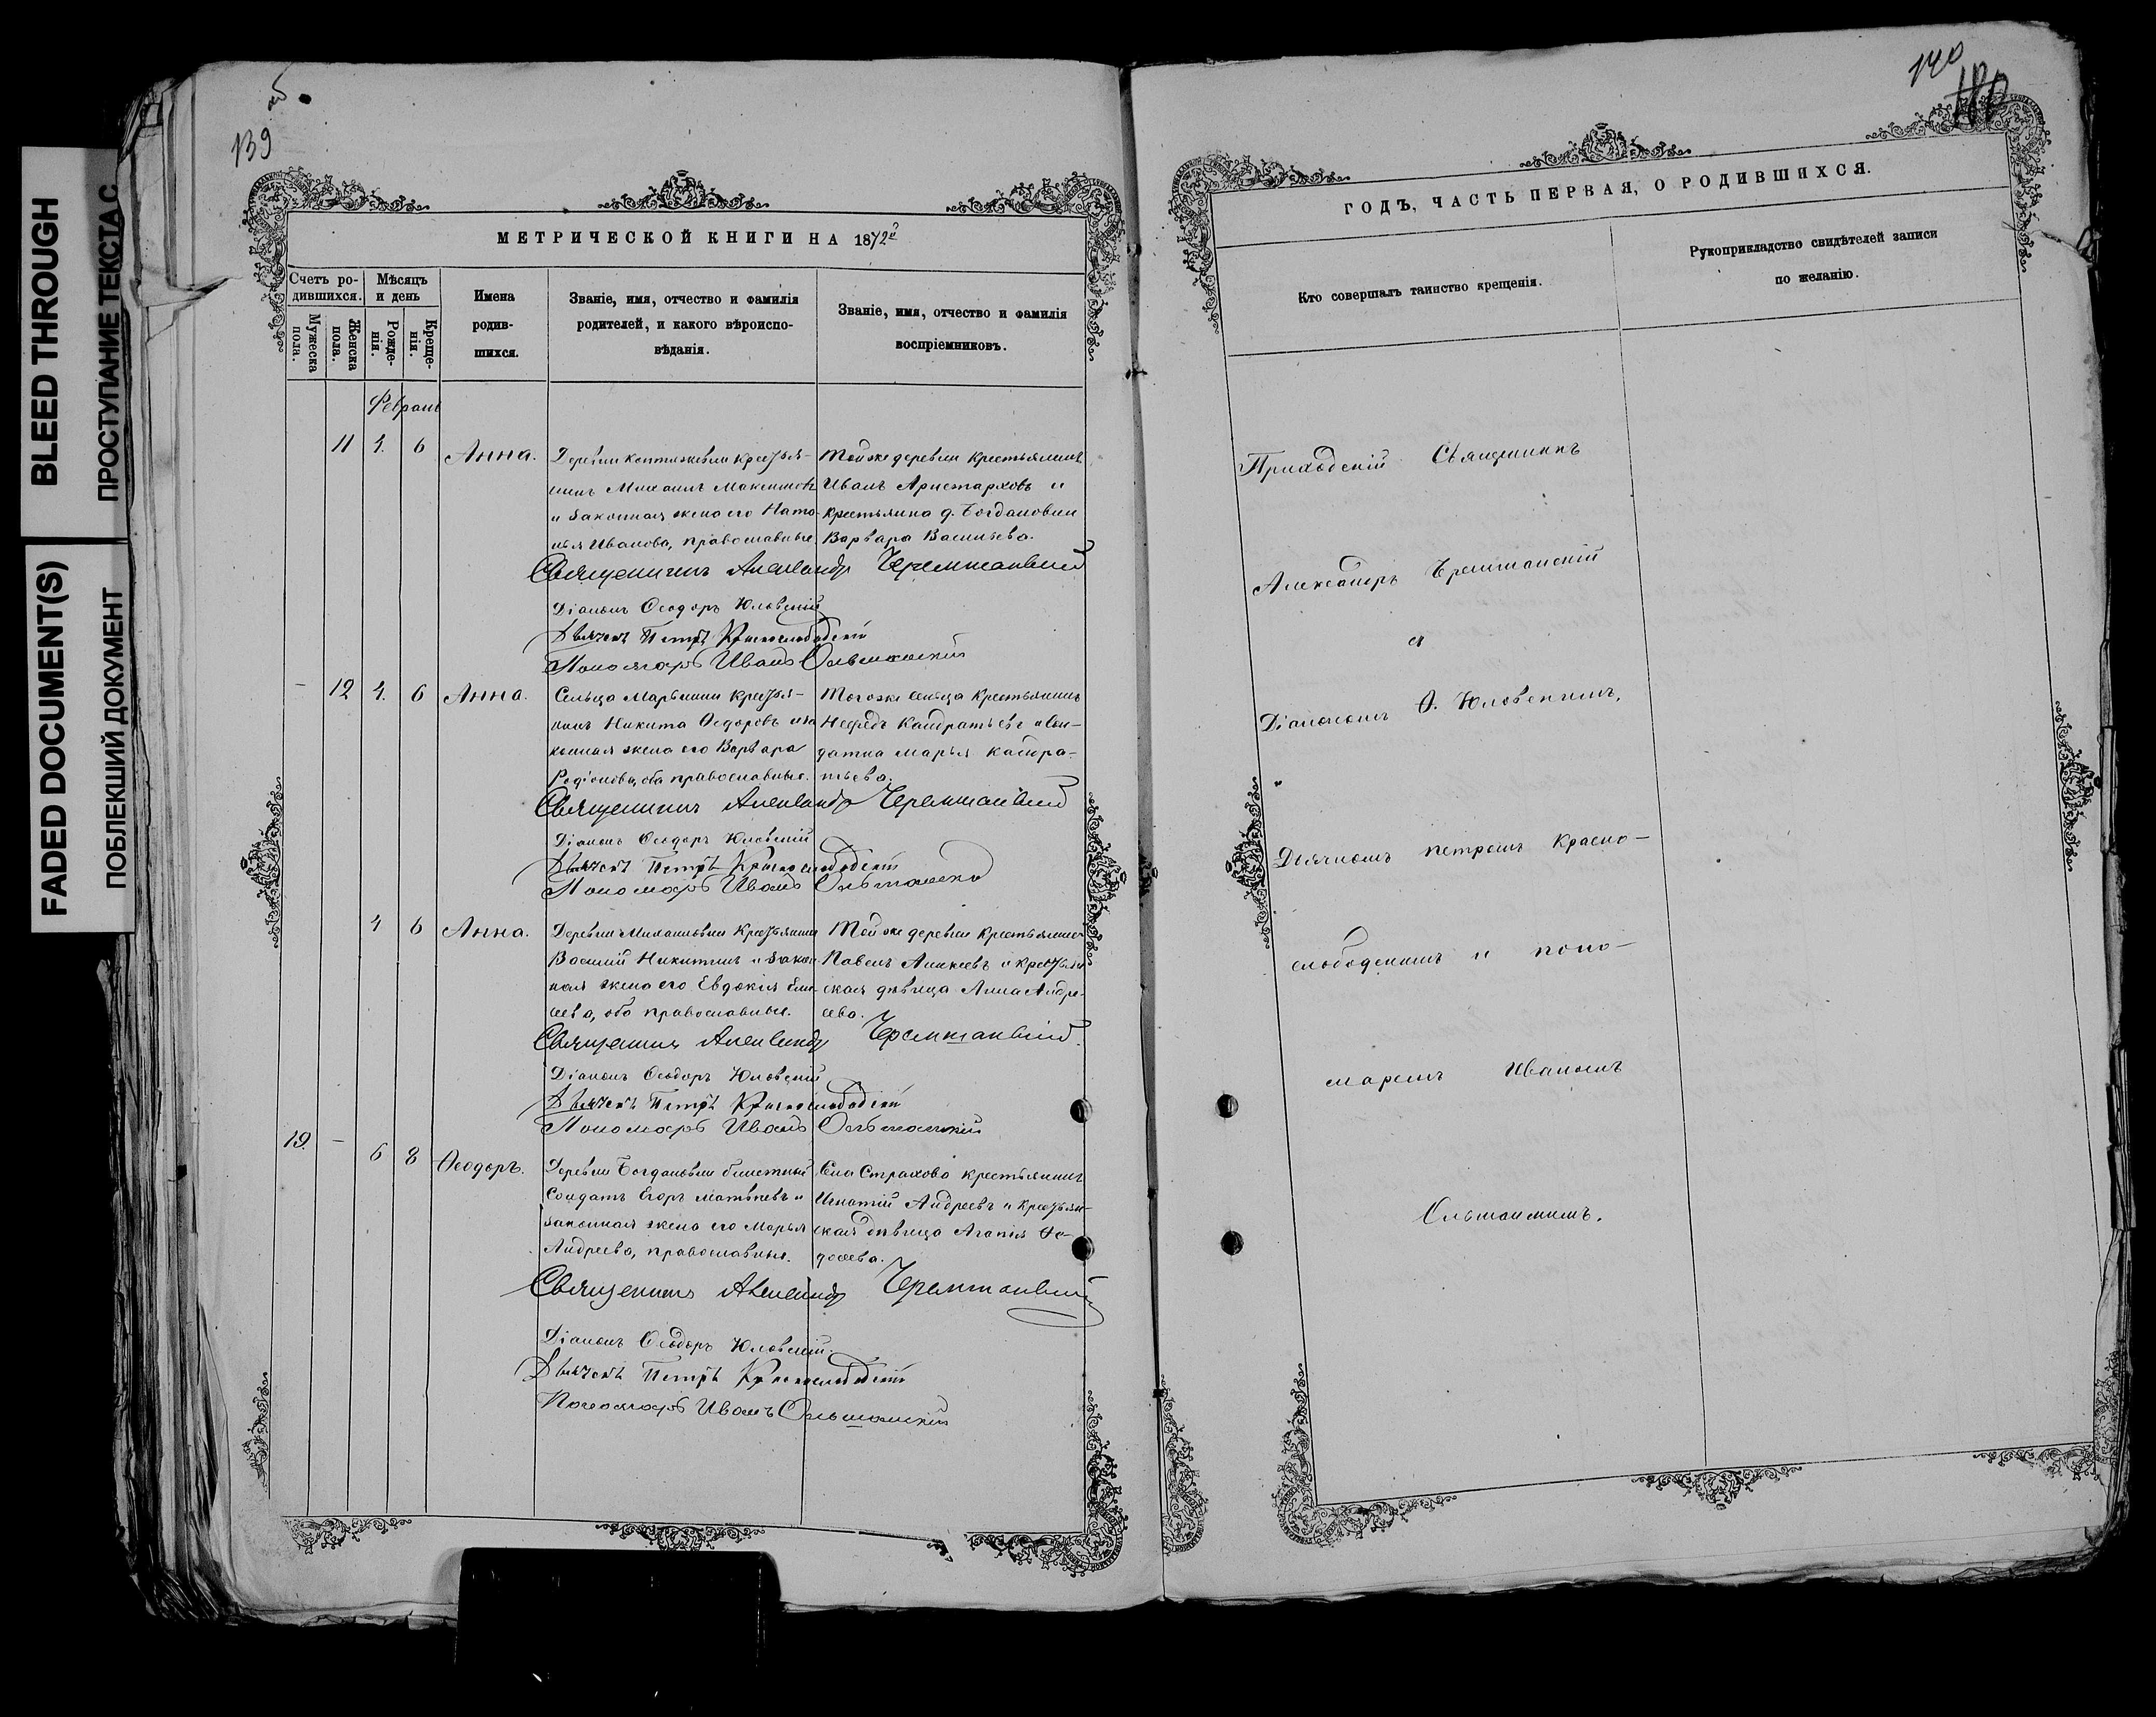 BLEED THROUGH
ПРОСТУПАНИЕ ТЕКСТА С
FADED DOCUMENT(S)
ПОБЛЕКШИЙ ДОКУМЕНТ
139
МЕТРИЧЕСКОЙ КНИГИ НА 1872й
Счетъ ро-
дившихся.
Мѣсяцъ
и день
Имена
родив-
шихся.
Званіе, имя, отчество и фамилія
родителей, и какого вѣроиспо-
вѣданія.
Званіе, имя, отчество и фамилія
воспріемниковъ.
Мужеска
пола.
Женска
пола.
Рожде-
нія.
Креще-
нія.
Февраль
11 4. 6 Анна.
Деревни крестья-
нинъ Михаилъ Максимовъ
и законная жена его Ната-
лья Иванова, православные.
Той же деревни крестьянинъ
Иванъ Аристарховъ и
крестьянка д. Богдановки
Варвара Васильева.
Священникъ Александр Черемшанскій
Діаконъ Ѳеодоръ Юловскій
Дьячекъ Петръ Краснослободскій
Пономарь Иванъ Ольшанскій
– 12 4. 6 Анна.
Сельца Марьинки крестья-
нинъ Никита Ѳедоровъ и за
конная жена его Варвара
Родіонова, оба православные.
Того же сельца крестьянинъ
Нефедъ Кандратьевъ и сол-
датка Марья Кандра-
тьева.
Священникъ Александр Черемшанскій
Діаконъ Ѳеодоръ Юловскій
Дьячекъ Петръ Краснослободскій
Пономарь Иванъ
4 6 Анна.
Деревни Михайловки крестьянинъ
Василій Никитинъ и закон
ная жена его Евдокія
сеева, оба православные.
Той же деревни крестьянинъ
Павелъ Алексеевъ и крестьян
ская дѣвица Анна Андре-
ева.
Священникъ Александр Черемшанскій.
Діаконъ Ѳеодоръ Юловскій
Дьячекъ Петръ Краснослободскій
Пономарь Иванъ Ольшанскій
19. – 6 8 Ѳеодоръ.
Деревни Богдановки билетный
Солдатъ Егоръ Матвѣевъ и
законная жена его Марья
Андреева, православные.
Села Страхова крестьянинъ
Игнатій Андреевъ и крестьян-
ская дѣвица Агапія Ѳе-
досеева.
Священникъ Александр Черемшанскій
Діаконъ Ѳеодоръ Юловскій.
Дьячекъ Петръ Краснослободскій
Пономарь Иванъ Ольшанскій
140
ГОДЪ, ЧАСТЬ ПЕРВАЯ, О РОДИВШИХСЯ.
Кто совершалъ таинство крещенія.
Рукоприкладство свидѣтелей записи
по желанію.
Приходскій Священникъ
Александръ Черемшанскій
съ
Діакономъ Ѳ. Юловскимъ,
Дьячкомъ Петромъ Красно-
слободскимъ и поно-
маремъ Иваномъ
Ольшанскимъ.